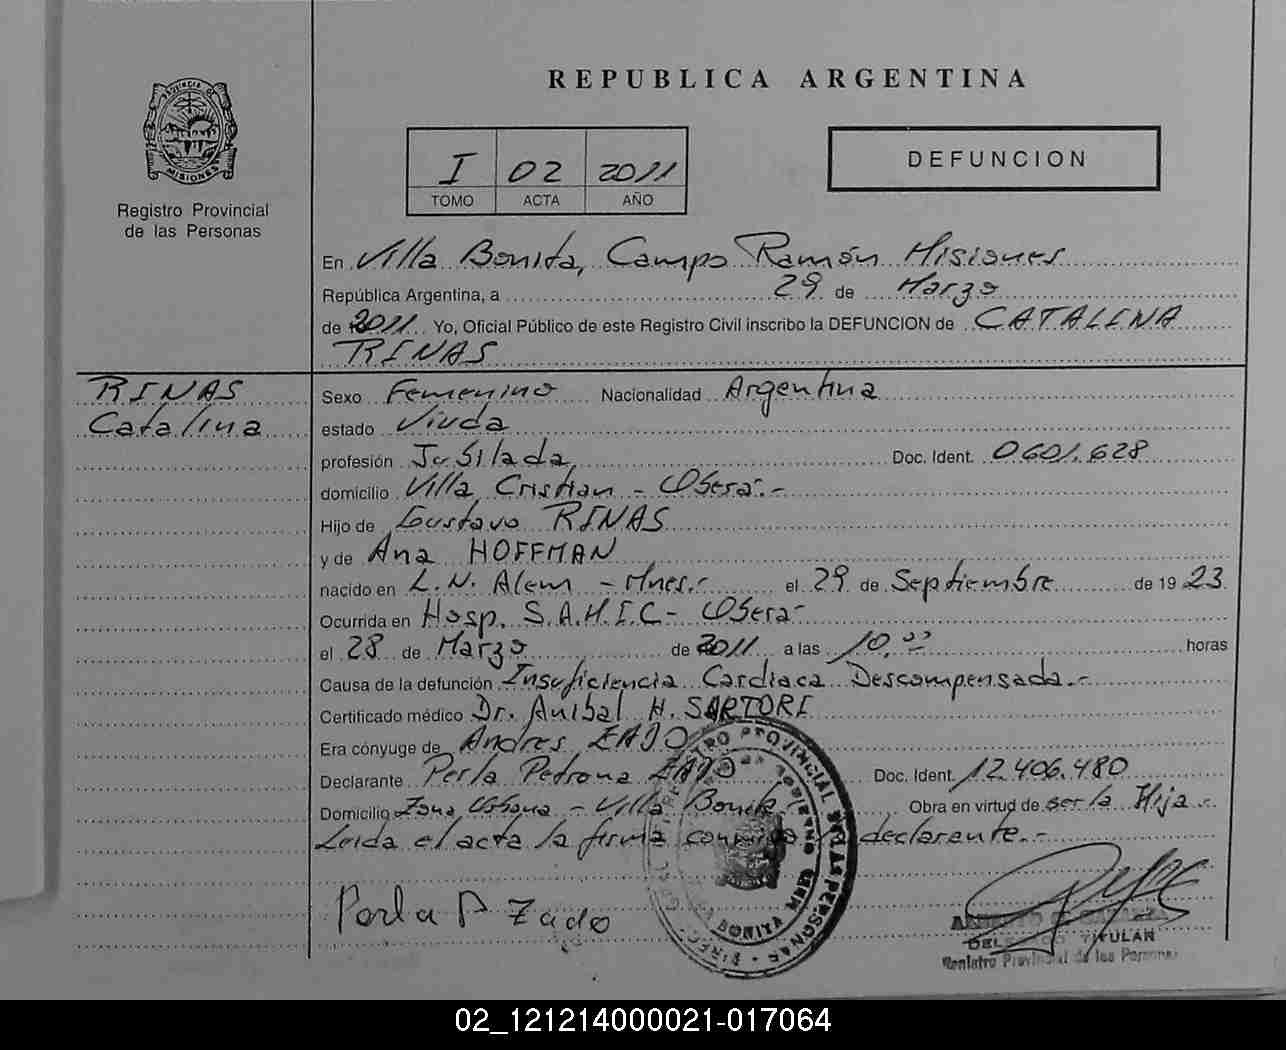 REPUBLICA ARGENTINA
MISIONES
Registro Provincial
de las Personas
I 02 2011
TOMO ACTA AÑO
DEFUNCION
En Villa Bonita, Campo Ramón Misiones
República Argentina, a 29 de Marzo
de 2011 Yo, Oficial Público de este Registro Civil inscribo la DEFUNCION de CATALINA
RINAS
RINAS
Catalina
Sexo Femenino Nacionalidad Argentina
estado Viuda
profesión Jubilada Doc. Ident. 0601.628
domicilio Villa Cristian - Oberá.-
Hijo de Gustavo RINAS
y de Ana HOFFMAN
nacido en L.N. Alem - Mnes.- el 29 de Septiembre de 19 23
Ocurrida en Hosp. S.A.M.I.C - Oberá-
el 28 de Marzo de 2011 a las 10,00 horas
Causa de la defunción Insuficiencia Cardiaca Descompensada.-
Certificado médico Dr. Anibal H. SARTORI
Era cónyuge de Andres ZADO
Declarante Perla Petrona ZADO Doc. Ident. 12.406.480
Domicilio Zona Urbana - Villa Bonita Obra en virtud de ser la Hija.-
Leida el acta la firma conmigo la declarante.-
Perla P Zado
TITULAR
Registro Provincial de las Personas
02_121214000021-017064